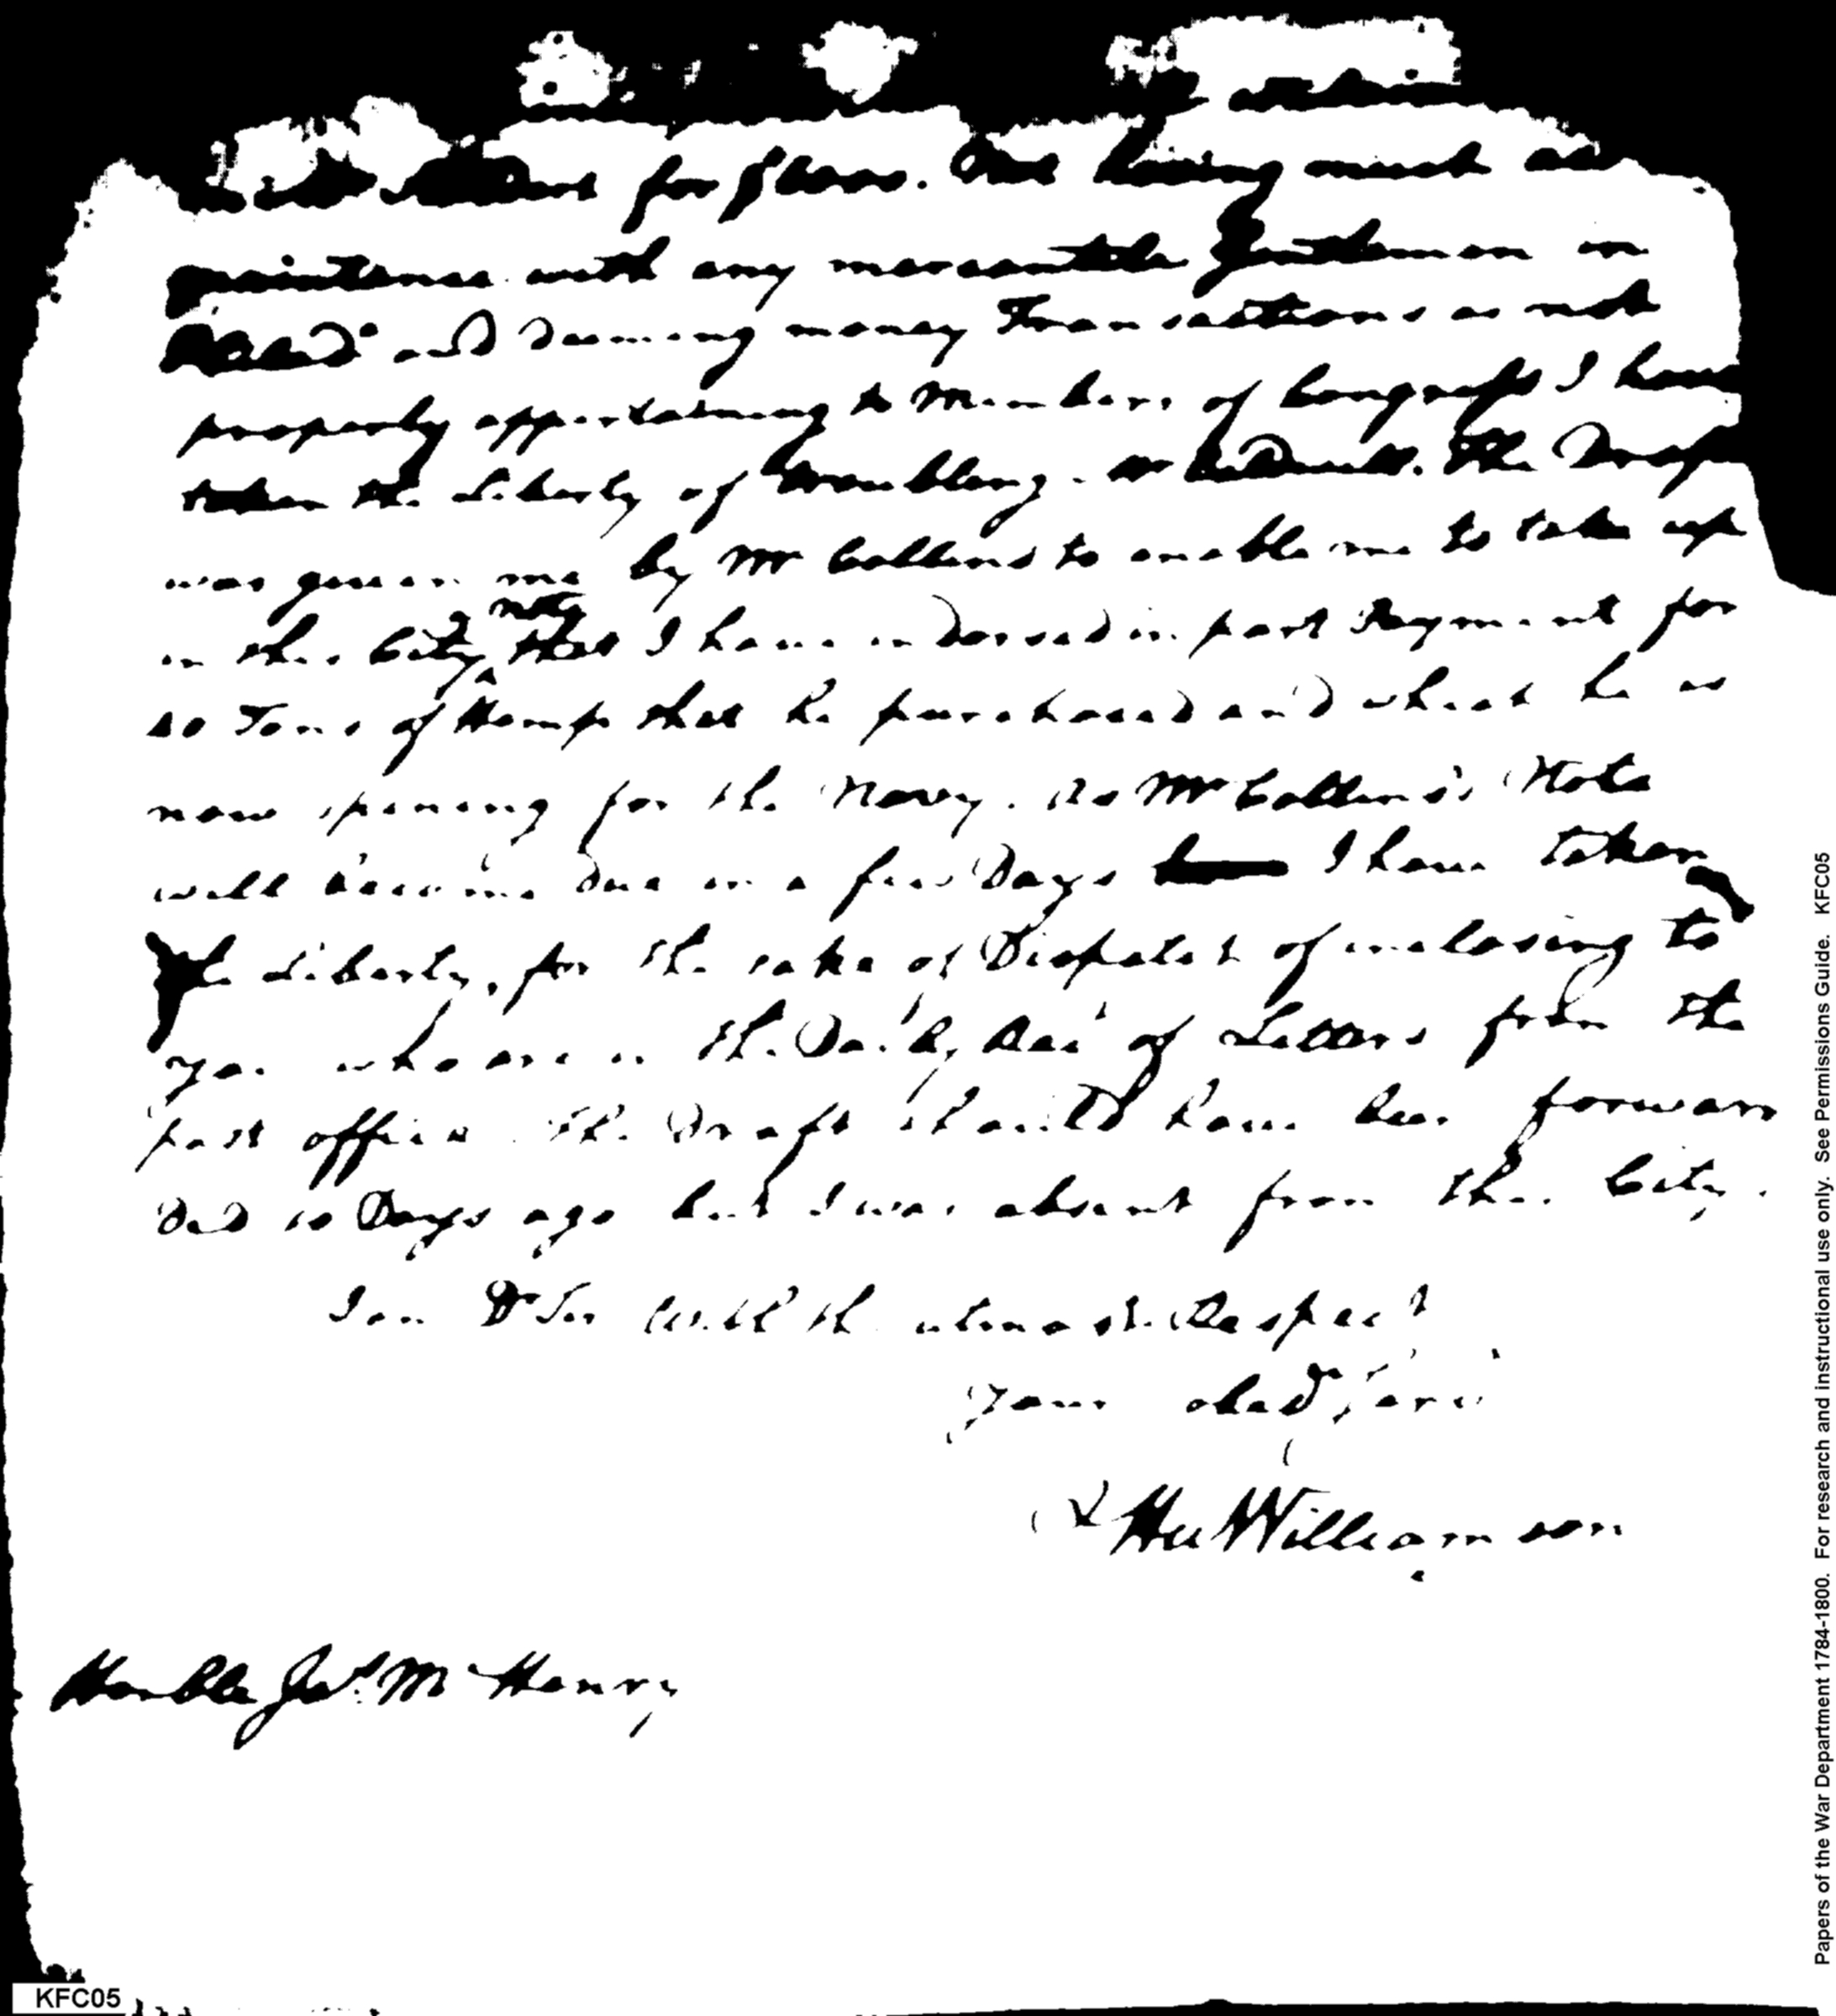 for [...] . Not having much ac
quaintance with any mercantile Gentleman in
and deeming money Transactions as not
properly appertaining to Members of Congress I have
taken the Liberty of troubling . The Draft
was given me by Mr Cullens to enable me to take up
in this City note that I have indorsed in part Payment for
10 Tons of Hemp that he purchased and which he is
now spining for the Navy. As Mr Cullens's Note
will become due in a few Days I have taken
the liberty, for the sake of Dispatch of inclosing to
you who are in the Daily Rec't of Letters from the
post office the Draft should have been forwar
ded 10 Days ago but I was absent from this City.
I am Dr Sir With the utmost Respect
your obed serv
Hu Williamson
Honble Jas. McHenry
KFC05
Papers of the War Department 1784-1800. For research and instructional use only. See Permissions Guide. KFC05